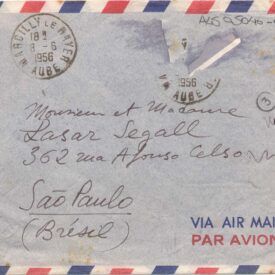 MARCILLY LE HAYER
18H
8-6
1956
AUBE
1956
AUBE
Monsieur et Madame
Lasar Segall
362 rua Afonso Celso
São Paulo
(Brésil)
VIA AIR MAIL
PAR AVION